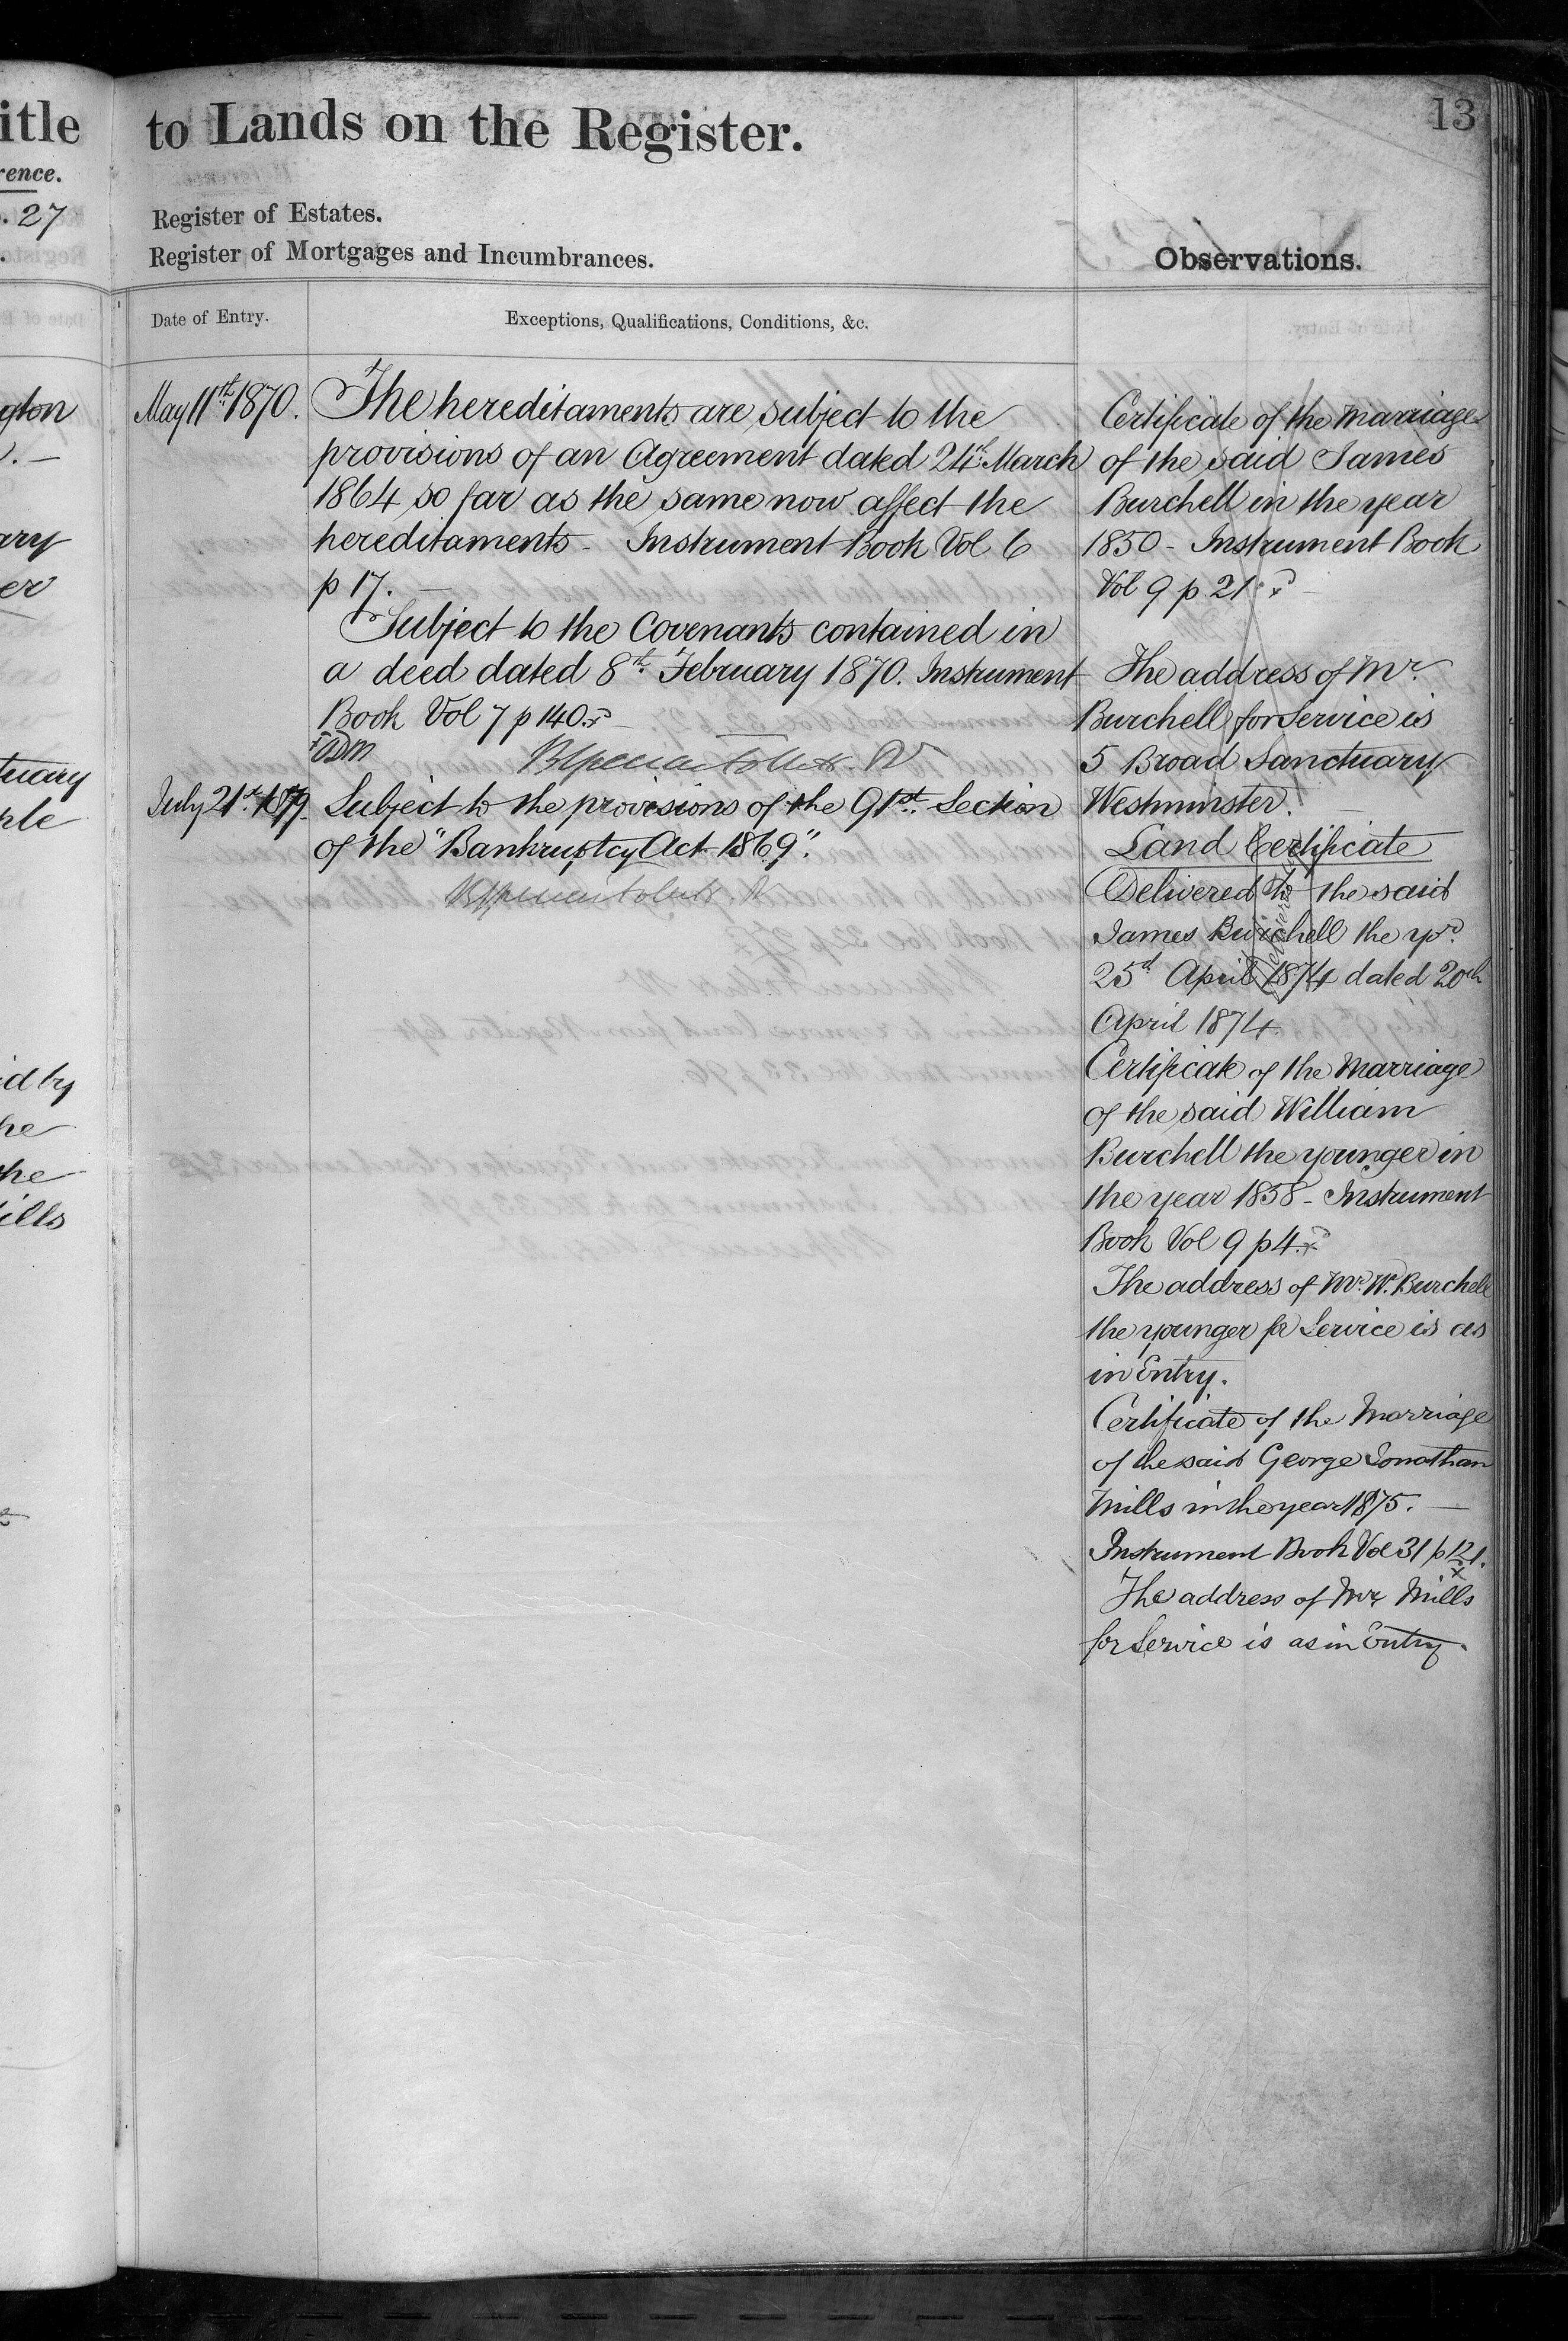 itle
rence.
. 27
gton
ary
er
tuary
ple
id by
he
the
ills
13
to Lands on the Register.
Register of Estates.
Register of Mortgages and Incumbrances.
Observations.
Date of Entry.
Exceptions, Qualifications, Conditions, &c.
May 11th 1870.
The hereditaments are subject to the
provisions of an Agreement dated 24th March
1864 so far as the same now affect the
hereditaments - Instrument Book Vol 6
p 17.
Subject to the Covenants contained in
a deed dated 8th February 1870. Instrument
Book Vol 7 p 140.
July 21st 1879.
Subject to the provisions of the 91st Section
of the "Bankruptcy Act 1869".
Certificate of the Marriage
of the said James
Burchell in the year
1850 - Instrument Book
Vol 9 p 21
The address of Mr
Burchell for Service is
5 Broad Sanctuary
Westminster.
Land Certificate
Delivered to the said
James Burchell the yr
25th April 1874 dated 20th
April 1874
Certificate of the Marriage
of the said William
Burchell the younger in
the year 1858 - Instrument
Book Vol 9 p 4.
The address of Mr. W. Burchell
the younger for Service is as
in Entry.
Certificate of the Marriage
of the said George Jonathan
Mills in the year 1875. —
Instrument Book Vol 31 p 121.
The address of Mr Mills
for Service is as in Entry.